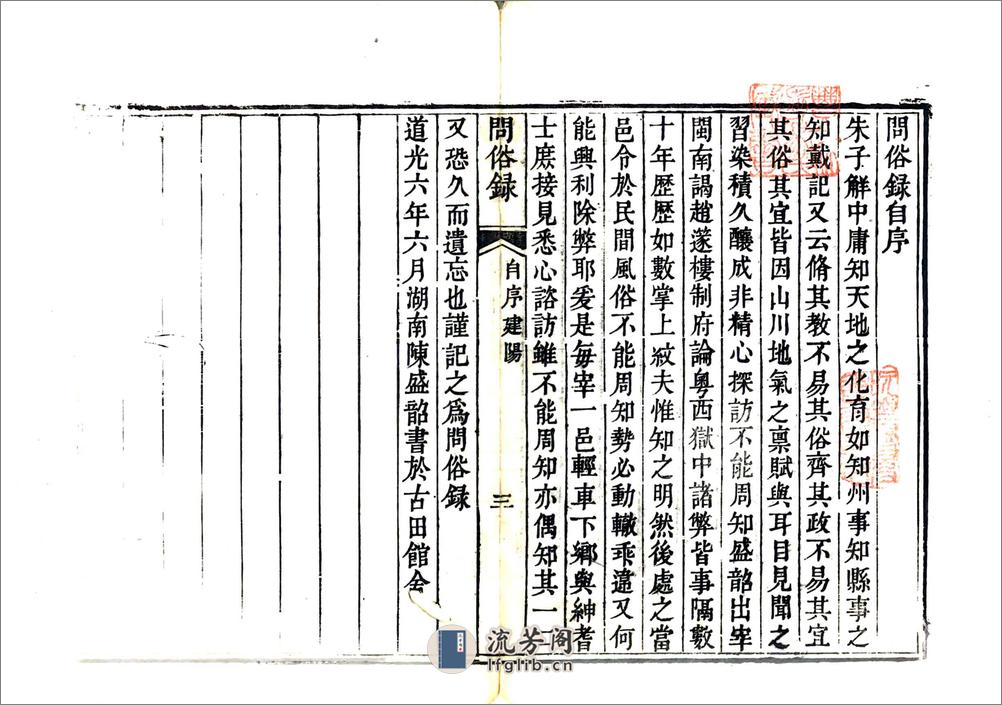 問俗録自序
朱子解中庸知天地之化育如知州事知縣事之
知戴記又云脩其教不易其俗齊其政不易其宜
其俗其宜皆因山川地氣之禀賦與耳目見聞之
習染積久釀成非精心探訪不能周知盛韶出宰
閩南謁趙蓤樓制府論粤西獄中諸弊皆事隔數
十年歴歴如數掌上紋夫惟知之明然後處之當
邑令於民間風俗不能周知勢必動轍乖違又何
能興利除弊耶爰是每宰一邑輕車下鄉與紳耆
士庶接見悉心諮訪雖不能周知亦偶知其一
問俗録
自序建陽
三
又恐久而遺忘也謹記之爲問俗録
道光六年六月湖南陳盛韶書於古田館舍
流芳阁
lfglib.cn